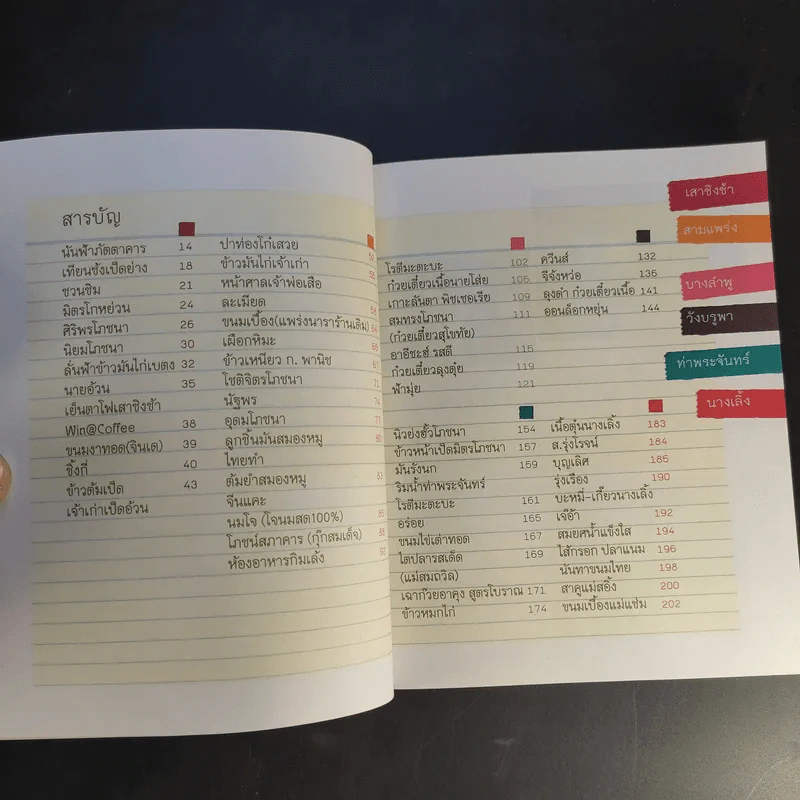 สารบัญ
นันฟ้าภัตตาคาร 14
เทียนซ้งเป็ดย่าง 18
ชวนชิม 21
มิตรโกหย่วน 24
ศิริพรโภชนา 26
นิยมโภชนา 30
ลั่นฟ้าข้าวมันไก่เบตง 32
นายอ้วน 35
เย็นตาโฟเสาชิงช้า
Win@Coffee 38
ขนมงาทอด(จินเด) 39
ชิ้งกี่ 40
ข้าวต้มเป็ด 43
เจ้าเก่าเป็ดอ้วน
ปาท่องโก๋เสวย
ข้าวมันไก่เจ้าเก่า
หน้าศาลเจ้าพ่อเสือ
ละเมียด
ขนมเบื้อง(แพร่งนาราร้านเดิม)
เผือกหิมะ
ข้าวเหนียว ก. พานิช
โชติจิตรโภชนา
นัฐพร
อุดมโภชนา
ลูกชิ้นมันสมองหมู
ไทยทำ
ต้มยำสมองหมู
จีนแคะ
นมโจ (โจนมสด100%)
โภชน์สภาคาร (กุ๊กสมเด็จ)
ห้องอาหารกิมเล้ง
โรตีมะตะบะ 102
ก๋วยเตี๋ยวเนื้อนายโส่ย 105
เกาะลันตา พิซเซอเรีย 109
สมทรงโภชนา 111
(ก๋วยเตี๋ยวสุโขทัย)
อาอีซะฮ์ รสดี 115
ก๋วยเตี๋ยวลุงตุ๋ย 119
ฟ้ามุ่ย 121
ควีนส์ 132
จีจังหว่อ 136
ลุงดำ ก๋วยเตี๋ยวเนื้อ 141
ออนล็อกหยุ่น 144
นิวย่งฮั้วโภชนา 154
ข้าวหน้าเป็ดมิตรโภชนา 157
มันรังนก 159
ริมน้ำท่าพระจันทร์
โรตีมะตะบะ 161
อร่อย 165
ขนมไข่เต่าทอด 167
ไตปลารสเด็ด 169
(แม่สมถวิล)
เฉาก๊วยอาคุง สูตรโบราณ 171
ข้าวหมกไก่ 174
เนื้อตุ๋นนางเลิ้ง 183
ส.รุ่งโรจน์ 184
บุญเลิศ 185
รุ่งเรือง 190
บะหมี่-เกี๊ยวนางเลิ้ง
เจ๊อ้า 192
สมยศน้ำแข็งใส 194
ไส้กรอก ปลาแนม 196
นันทาขนมไทย 198
สาคูแม่สอิ้ง 200
ขนมเบื้องแม่แช่ม 202
เสาชิงช้า
สามแพร่ง
บางลำพู
วังบูรพา
ท่าพระจันทร์
นางเลิ้ง